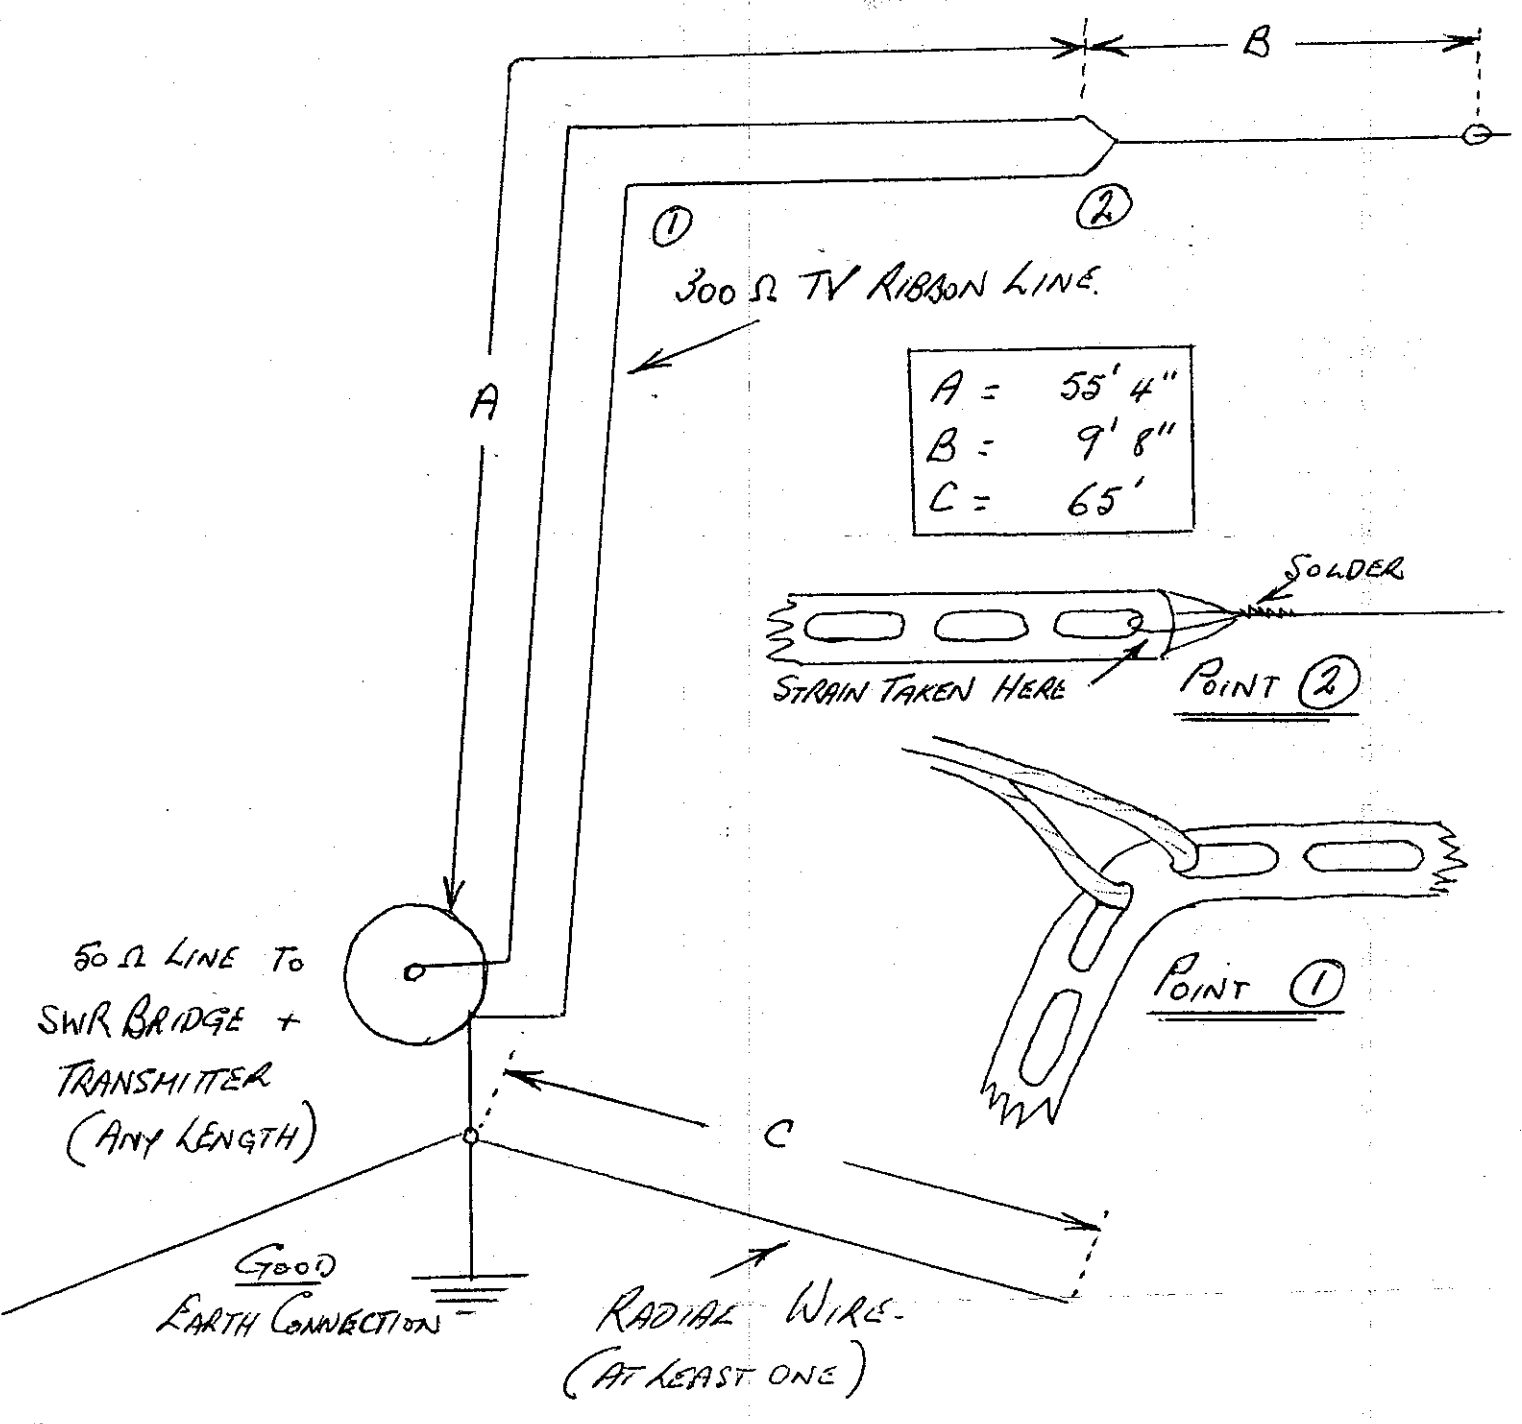 B
①
②
300 Ω TV RIBBON LINE.
A
A = 55' 4"
B = 9' 8"
C = 65'
SOLDER
STRAIN TAKEN HERE
POINT ②
POINT ①
50 Ω LINE TO
SWR BRIDGE +
TRANSMITTER
(ANY LENGTH)
C
GOOD
EARTH CONNECTION
RADIAL WIRE.
(AT LEAST ONE)